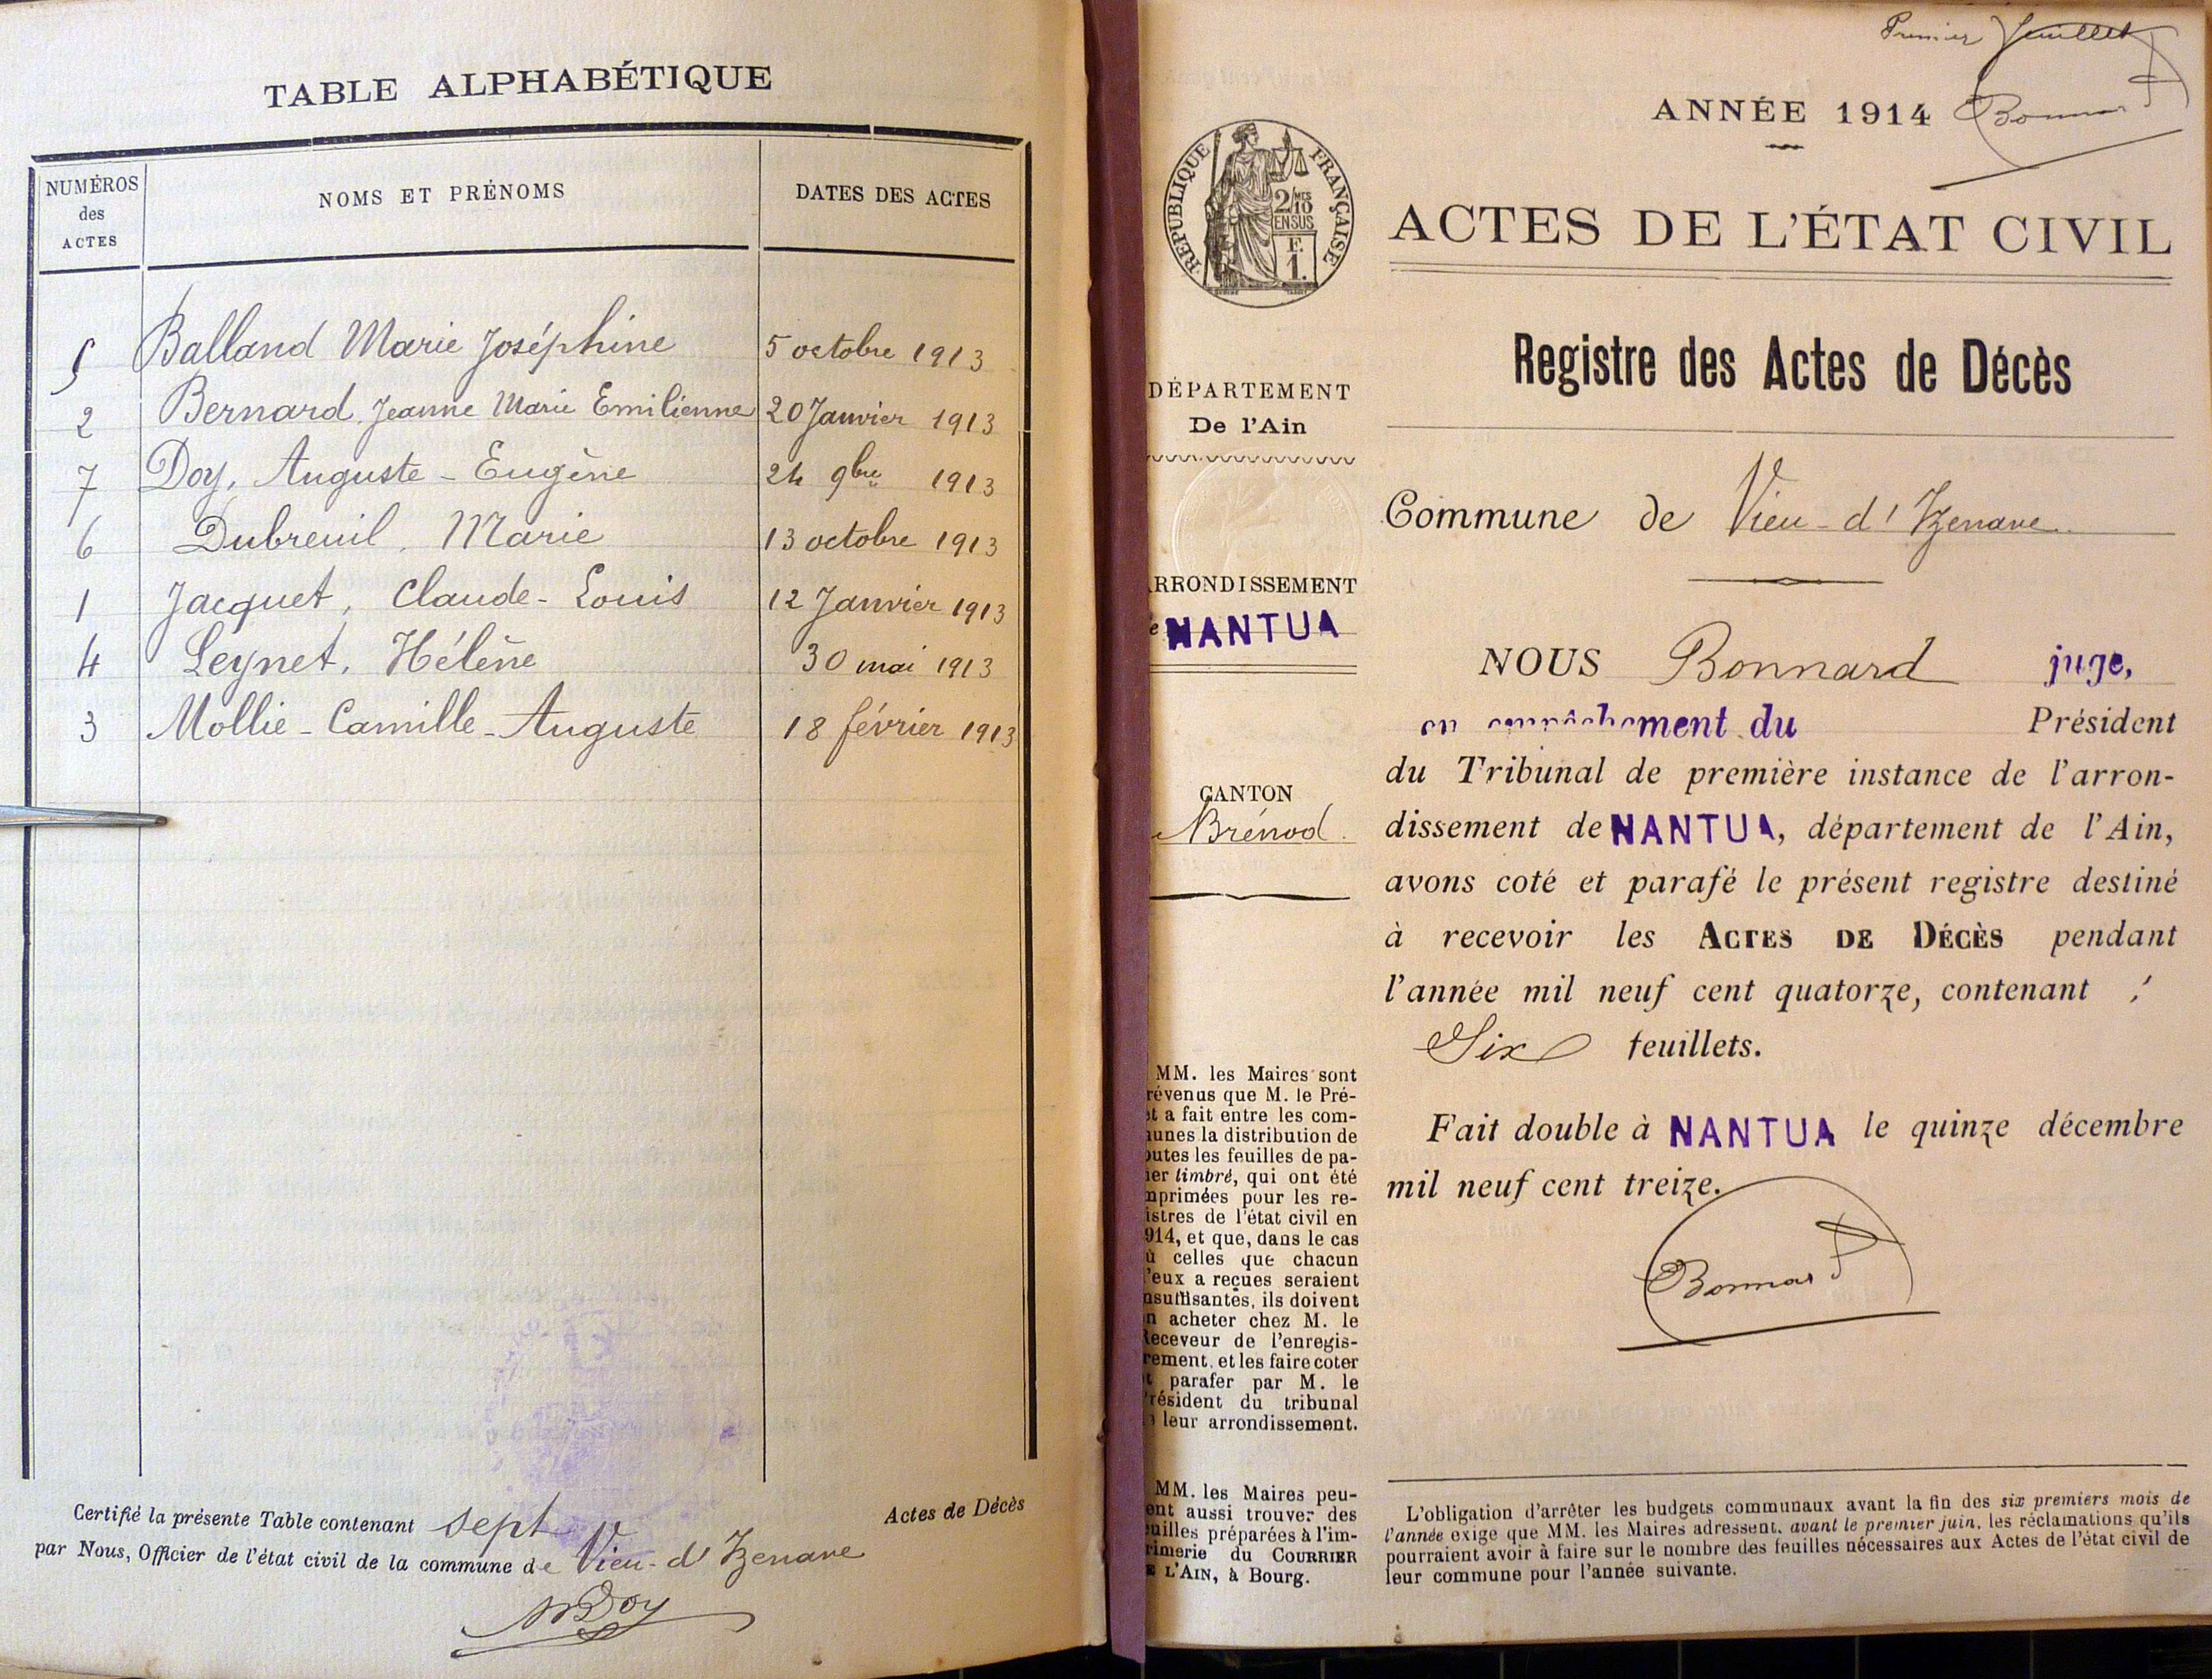 TABLE ALPHABÉTIQUE
NUMÉROS
des
ACTES
NOMS ET PRÉNOMS
DATES DES ACTES
5 Balland Marie Joséphine 5 octobre 1913
2 Bernard Jeanne Marie Emilienne 20 Janvier 1913
7 Doy, Auguste - Eugène 24 9bre 1913
6 Dubreuil, Marie 13 octobre 1913
1 Jacquet, Claude - Louis 12 Janvier 1913
4 Leynet, Hélène 30 mai 1913
3 Mollie - Camille - Auguste 18 février 1913
Certifié la présente Table contenant sept
Actes de Décès
par Nous, Officier de l'état civil de la commune de Vieu-d'Izenave
Doy
Premier feuillet
ANNÉE 1914
Bonnard
RÉPUBLIQUE FRANÇAISE
2/10MES
EN SUS
F.
1.
ACTES DE L'ÉTAT CIVIL
Registre des Actes de Décès
DÉPARTEMENT
De l'Ain
RRONDISSEMENT
e NANTUA
CANTON
Brénod
MM. les Maires sont
révenus que M. le Pré-
et a fait entre les com-
unes la distribution de
outes les feuilles de pa-
ier timbré, qui ont été
mprimées pour les re-
istres de l'état civil en
914, et que, dans le cas
ù celles que chacun
'eux a reçues seraient
nsuffisantes, ils doivent
n acheter chez M. le
Receveur de l'enregis-
rement, et les faire coter
t parafer par M. le
Président du tribunal
leur arrondissement.
MM. les Maires peu-
ent aussi trouver des
euilles préparées à l'im-
rimerie du COURRIER
E L'AIN, à Bourg.
Commune de Vieu-d'Izenave
NOUS Bonnard juge,
en empêchement du Président
du Tribunal de première instance de l'arron-
dissement de NANTUA, département de l'Ain,
avons coté et parafé le présent registre destiné
à recevoir les ACTES DE DÉCÈS pendant
l'année mil neuf cent quatorze, contenant
Six feuillets.
Fait double à NANTUA le quinze décembre
mil neuf cent treize.
Bonnard
L'obligation d'arrêter les budgets communaux avant la fin des six premiers mois de
l'année exige que MM. les Maires adressent, avant le premier juin, les réclamations qu'ils
pourraient avoir à faire sur le nombre des feuilles nécessaires aux Actes de l'état civil de
leur commune pour l'année suivante.